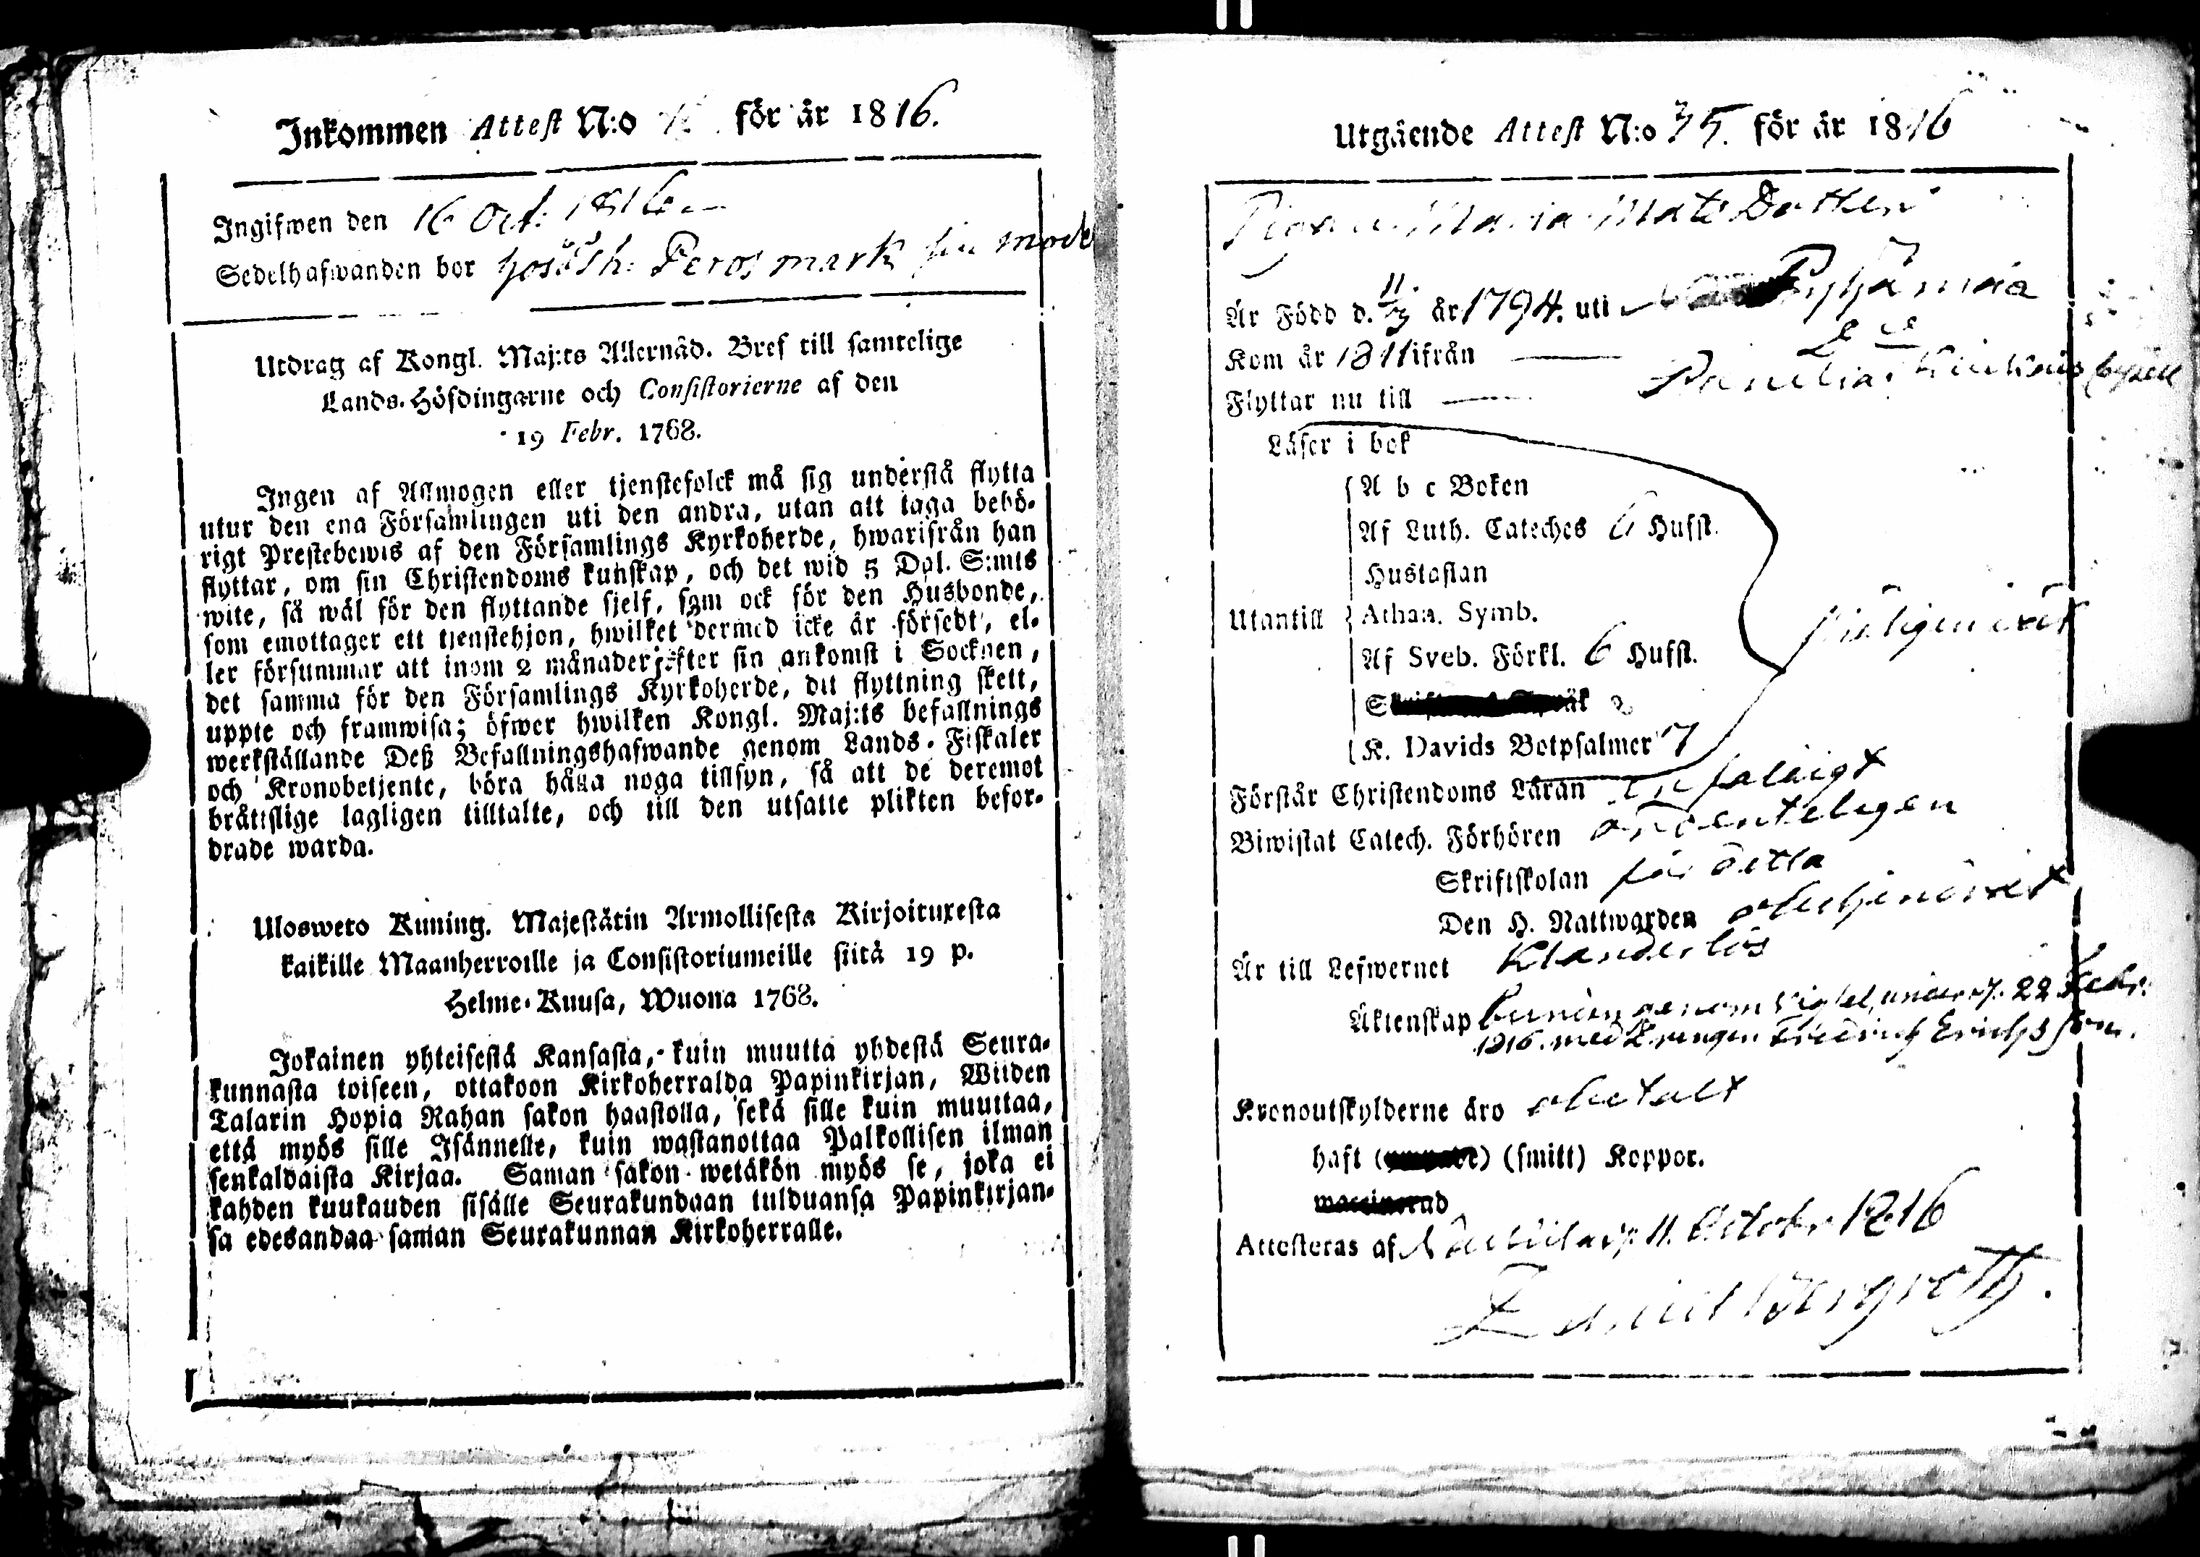 Inkommen Attest N:o för år 1816.
Ingifwen den 16 Oct: 1816
Sedelhafwanden bor hos Sh: Perosmark sin
Utdrag af Kongl. Maj:ts Allernåd. Bref till samtelige
Lands-Höfdingarne och Consistorierne af den
19 Febr. 1768.
Ingen af Allmogen eller tjenstefolck må sig understå flytta
utur den ena Församlingen uti den andra, utan att taga behö-
rigt Prestebewis af den Församlings Kyrkoherde, hwarifrån han
flyttar, om sin Christendoms kunskap, och det wid 5 Dal. S:mts
wite, så wäl för den flyttande sjelf, som ock för den Husbonde,
som emottager ett tjenstehjon, hwilket dermed icke är försedt, el-
ler försummar att inom 2 månader efter sin ankomst i Socknen,
det samma för den Församlings Kyrkoherde, dit flyttning skett,
uppte och framwisa; öfwer hwilken Kongl. Maj:ts befallnings
werkställande Deß Befallningshafwande genom Lands-Fiskaler
och Kronobetjente, böra hålla noga tillsyn, så att de deremot
bråttslige lagligen tilltalte, och till den utsatte plikten befor-
drade warda.
Ulosweto Kuning. Majestätin Armollisesta Kirjoituxesta
kaikille Maanherroille ja Consistoriumeille siitä 19 p.
Helme-Kuusa, Wuona 1768.
Jokainen yhteisestä Kansasta, kuin muutta yhdestä Seura-
kunnasta toiseen, ottakoon Kirkoherralda Papinkirjan, Wiiden
Talarin Hopia Rahan sakon haastolla, sekä sille kuin muuttaa,
että myös sille Isännelle, kuin wastanottaa Palkollisen ilman
senkaldaista Kirjaa. Saman sakon wetäkön myös se, joka ei
kahden kuukauden sisälle Seurakundaan tulduansa Papinkirjan-
sa edesandaa saman Seurakunnan Kirkoherralle.
Utgående Attest N:o 35. för år 1816
Pigan Maria Mats Dotter
Är Född d. 11/3 år 1794. uti Pyhämaa
Kom år 1811 ifrån
Flyttar nu till
Läser i bok
A b c Boken
Af Luth. Cateches 6 Hufst.
Hustaflan
Utantill Athan. Symb.
Af Sveb. Förkl. 6 Hufst.
K. Davids Botpsalmer 7
Förstår Christendoms Läran enfaldigt
Biwistat Catech. Förhören ordenteligen
Skriftskolan för detta
Den H. Nattwarden obehindrat
Är till Lefwernet Klanderlös
Äktenskap bunden genom vigsel under d. 22 Febr.
1816. med Drengen Friedrich Ericsson.
Kronoutskylderne äro obetalt
haft (smitt) Koppor.
Attesteras af d. 11. October 1816
Daniel Bergroth.